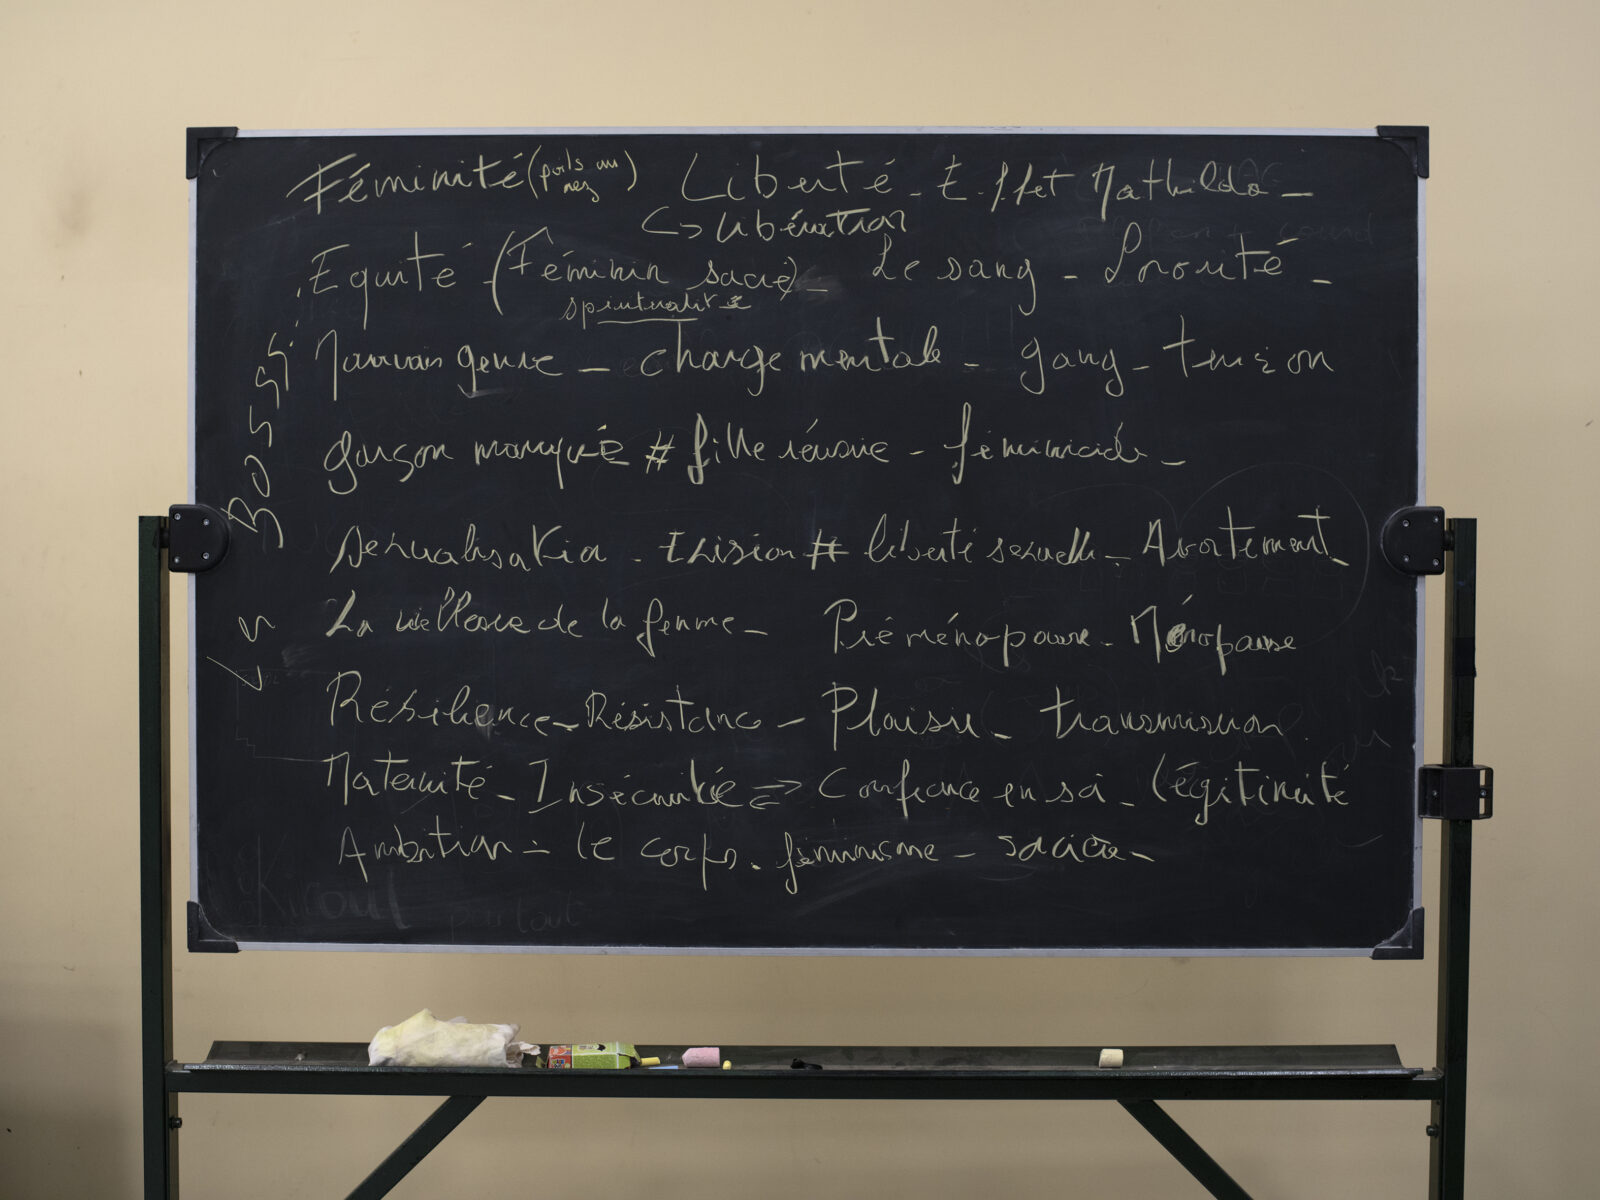 Féminité (poils au nez) Liberté - Effet Mathilda -
↳ libération
Equité (Féminin sacré) - Le sang - Sororité -
spiritualité
Mauvais genre - charge mentale - gang - tension
garçon manqué # fille réussie - féminicide -
sexualisation - Excision # liberté sexuelle - Avortement -
La vieillesse de la femme - Préménopause - Ménopause
Résilience - Résistance - Plaisir - transmission
Maternité - Insécurité ⇒ Confiance en soi - légitimité
Ambition - le corps - féminisme -
partout